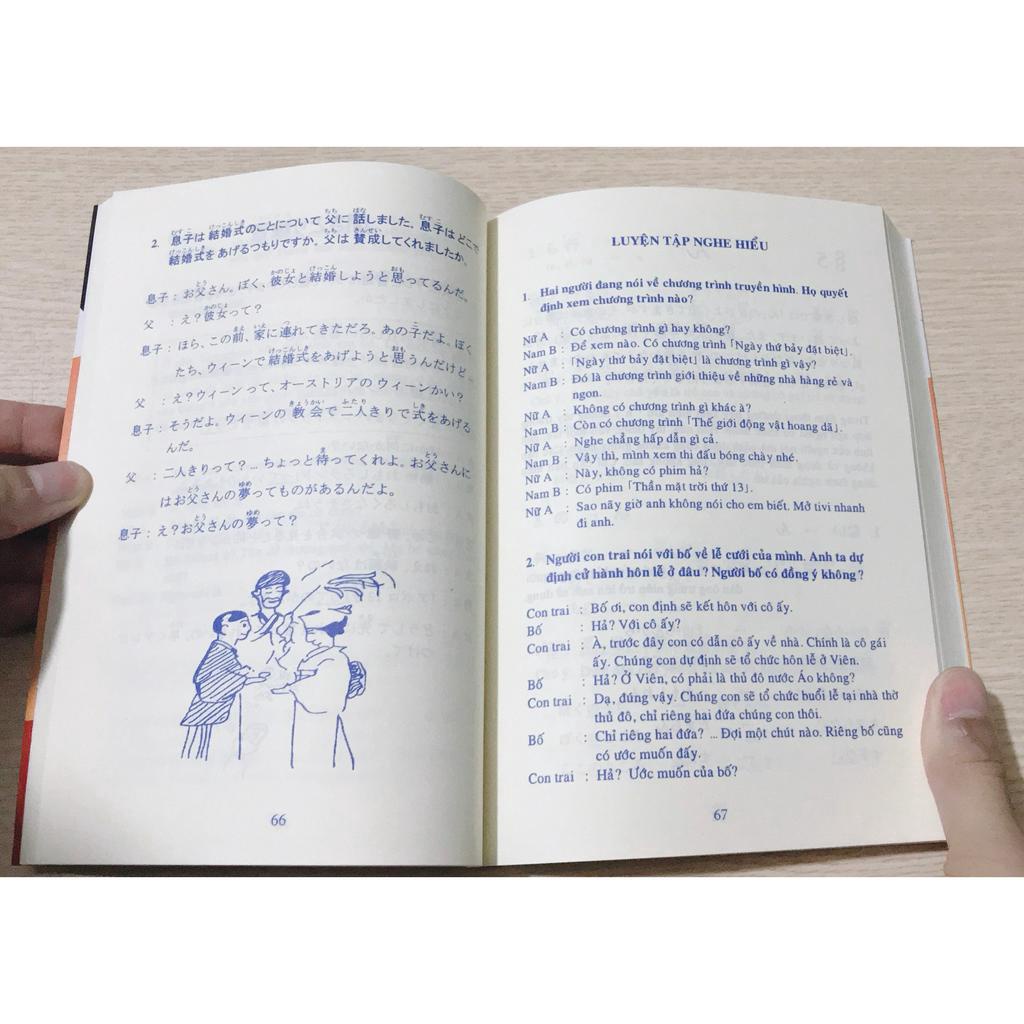 2. 息子は結婚式のことについて父に話しました。息子はどこで
結婚式をあげるつもりですか。父は賛成してくれましたか。
息子：お父さん。ぼく、彼女と結婚しようと思ってるんだ。
父　：え？彼女って？
息子：ほら、この前、家に連れてきただろ。あの子だよ。ぼく
たち、ウィーンで結婚式をあげようと思うんだけど
父　：え？ウィーンって、オーストリアのウィーンかい？
息子：そうだよ。ウィーンの教会で二人きりで式をあげる
んだ。
父　：二人きりって？…ちょっと待ってくれよ。お父さんに
はお父さんの夢ってものがあるんだよ。
息子：え？お父さんの夢って？
66
LUYỆN TẬP NGHE HIỂU
1. Hai người đang nói về chương trình truyền hình. Họ quyết
định xem chương trình nào?
Nữ A : Có chương trình gì hay không?
Nam B : Để xem nào. Có chương trình「Ngày thứ bảy đặt biệt」.
Nữ A :「Ngày thứ bảy đặt biệt」là chương trình gì vậy?
Nam B : Đó là chương trình giới thiệu về những nhà hàng rẻ và
ngon.
Nữ A : Không có chương trình gì khác à?
Nam B : Còn có chương trình「Thế giới động vật hoang dã」.
Nữ A : Nghe chẳng hấp dẫn gì cả.
Nam B : Vậy thì, mình xem thi đấu bóng chày nhé.
Nữ A : Này, không có phim hả?
Nam B : Có phim「Thần mặt trời thứ 13」.
Nữ A : Sao nãy giờ anh không nói cho em biết. Mở tivi nhanh
đi anh.
2. Người con trai nói với bố về lễ cưới của mình. Anh ta dự
định cử hành hôn lễ ở đâu? Người bố có đồng ý không?
Con trai : Bố ơi, con định sẽ kết hôn với cô ấy.
Bố : Hả? Với cô ấy?
Con trai : À, trước đây con có dẫn cô ấy về nhà. Chính là cô gái
ấy. Chúng con dự định sẽ tổ chức hôn lễ ở Viên.
Bố : Hả? Ở Viên, có phải là thủ đô nước Áo không?
Con trai : Dạ, đúng vậy. Chúng con sẽ tổ chức buổi lễ tại nhà thờ
thủ đô, chỉ riêng hai đứa chúng con thôi.
Bố : Chỉ riêng hai đứa? ... Đợi một chút nào. Riêng bố cũng
có ước muốn đấy.
Con trai : Hả? Ước muốn của bố?
67